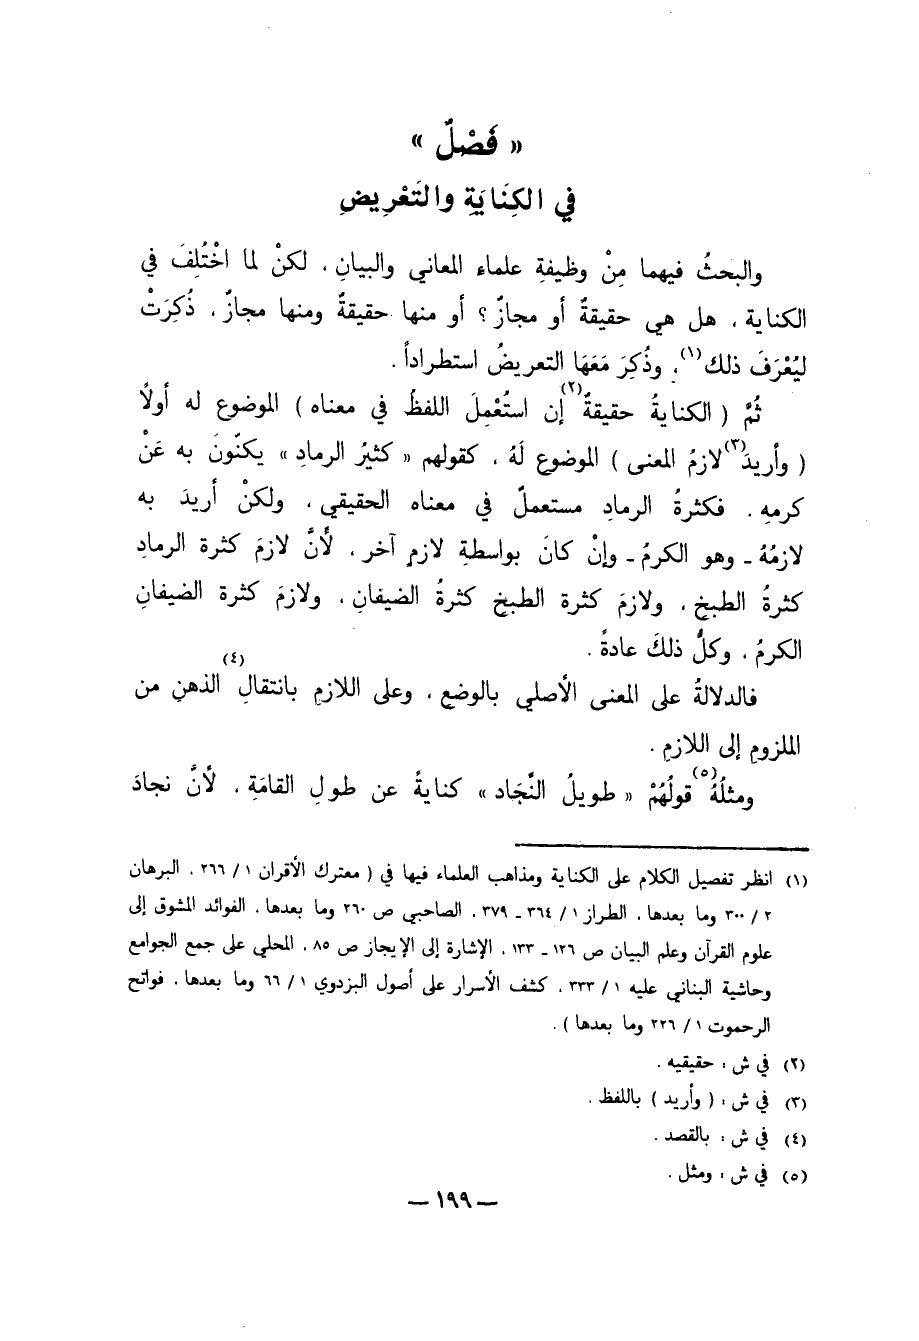 « فَصْلٌ »
في الكِنَايَةِ والتَعْرِيضِ
والبحثُ فيهما مِنْ وظيفةِ علماء المعاني والبيانِ ، لكنْ لما اخْتُلِفَ في
الكناية ، هل هي حقيقةٌ أو مجازٌ ؟ أو منها حقيقةٌ ومنها مجازٌ ، ذُكِرَتْ
ليُعْرَفَ ذلك (١) ، وذُكِرَ مَعَهَا التعريضُ استطراداً .
ثُمَّ ( الكنايةُ حقيقةٌ (٢) إن استُعْمِلَ اللفظُ في معناه ) الموضوع له أولاً
( وأريدَ (٣) لازمُ المعنى ) الموضوع لَهُ ، كقولهم « كثيرُ الرمادِ » يكنّونَ به عَنْ
كرمهِ . فكثرةُ الرمادِ مستعملٌ في معناه الحقيقي ، ولكنْ أريدَ به
لازمُهُ ـ وهو الكرمُ ـ وإنْ كانَ بواسطةِ لازمٍ آخر ، لأنَّ لازمَ كثرة الرمادِ
كثرةُ الطبخِ ، ولازمَ كثرة الطبخِ كثرةُ الضيفان ، ولازمَ كثرة الضيفانِ
الكرمُ ، وكلُّ ذلكَ عادةً .
فالدلالةُ على المعنى الأصلي بالوضعِ ، وعلى اللازمِ بانتقالِ (٤) الذهنِ من
الملزومِ إلى اللازمِ .
ومثلُهُ (٥) قولُهُمْ « طويلُ النَّجَاد » كنايةً عن طولِ القامَةِ ، لأنَّ نجادَ
(١) انظر تفصيل الكلام على الكناية ومذاهب العلماء فيها في ( معترك الأقران ١ / ٢٦٦ ، البرهان
٢ / ٣٠٠ وما بعدها ، الطراز ١ / ٣٦٤ ـ ٣٧٩ ، الصاحبي ص ٢٦٠ وما بعدها ، الفوائد المشوق إلى
علوم القرآن وعلم البيان ص ١٢٦ ـ ١٣٣ ، الإشارة إلى الإيجاز ص ٨٥ ، المحلي على جمع الجوامع
وحاشية البناني عليه ١ / ٣٣٣ ، كشف الأسرار على أصول البزدوي ١ / ٦٦ وما بعدها ، فواتح
الرحموت ١ / ٢٢٦ وما بعدها ) .
(٢) في ش : حقيقيه .
(٣) في ش : ( وأريد ) باللفظ .
(٤) في ش : بالقصد .
(٥) في ش : ومثل .
— ١٩٩ —